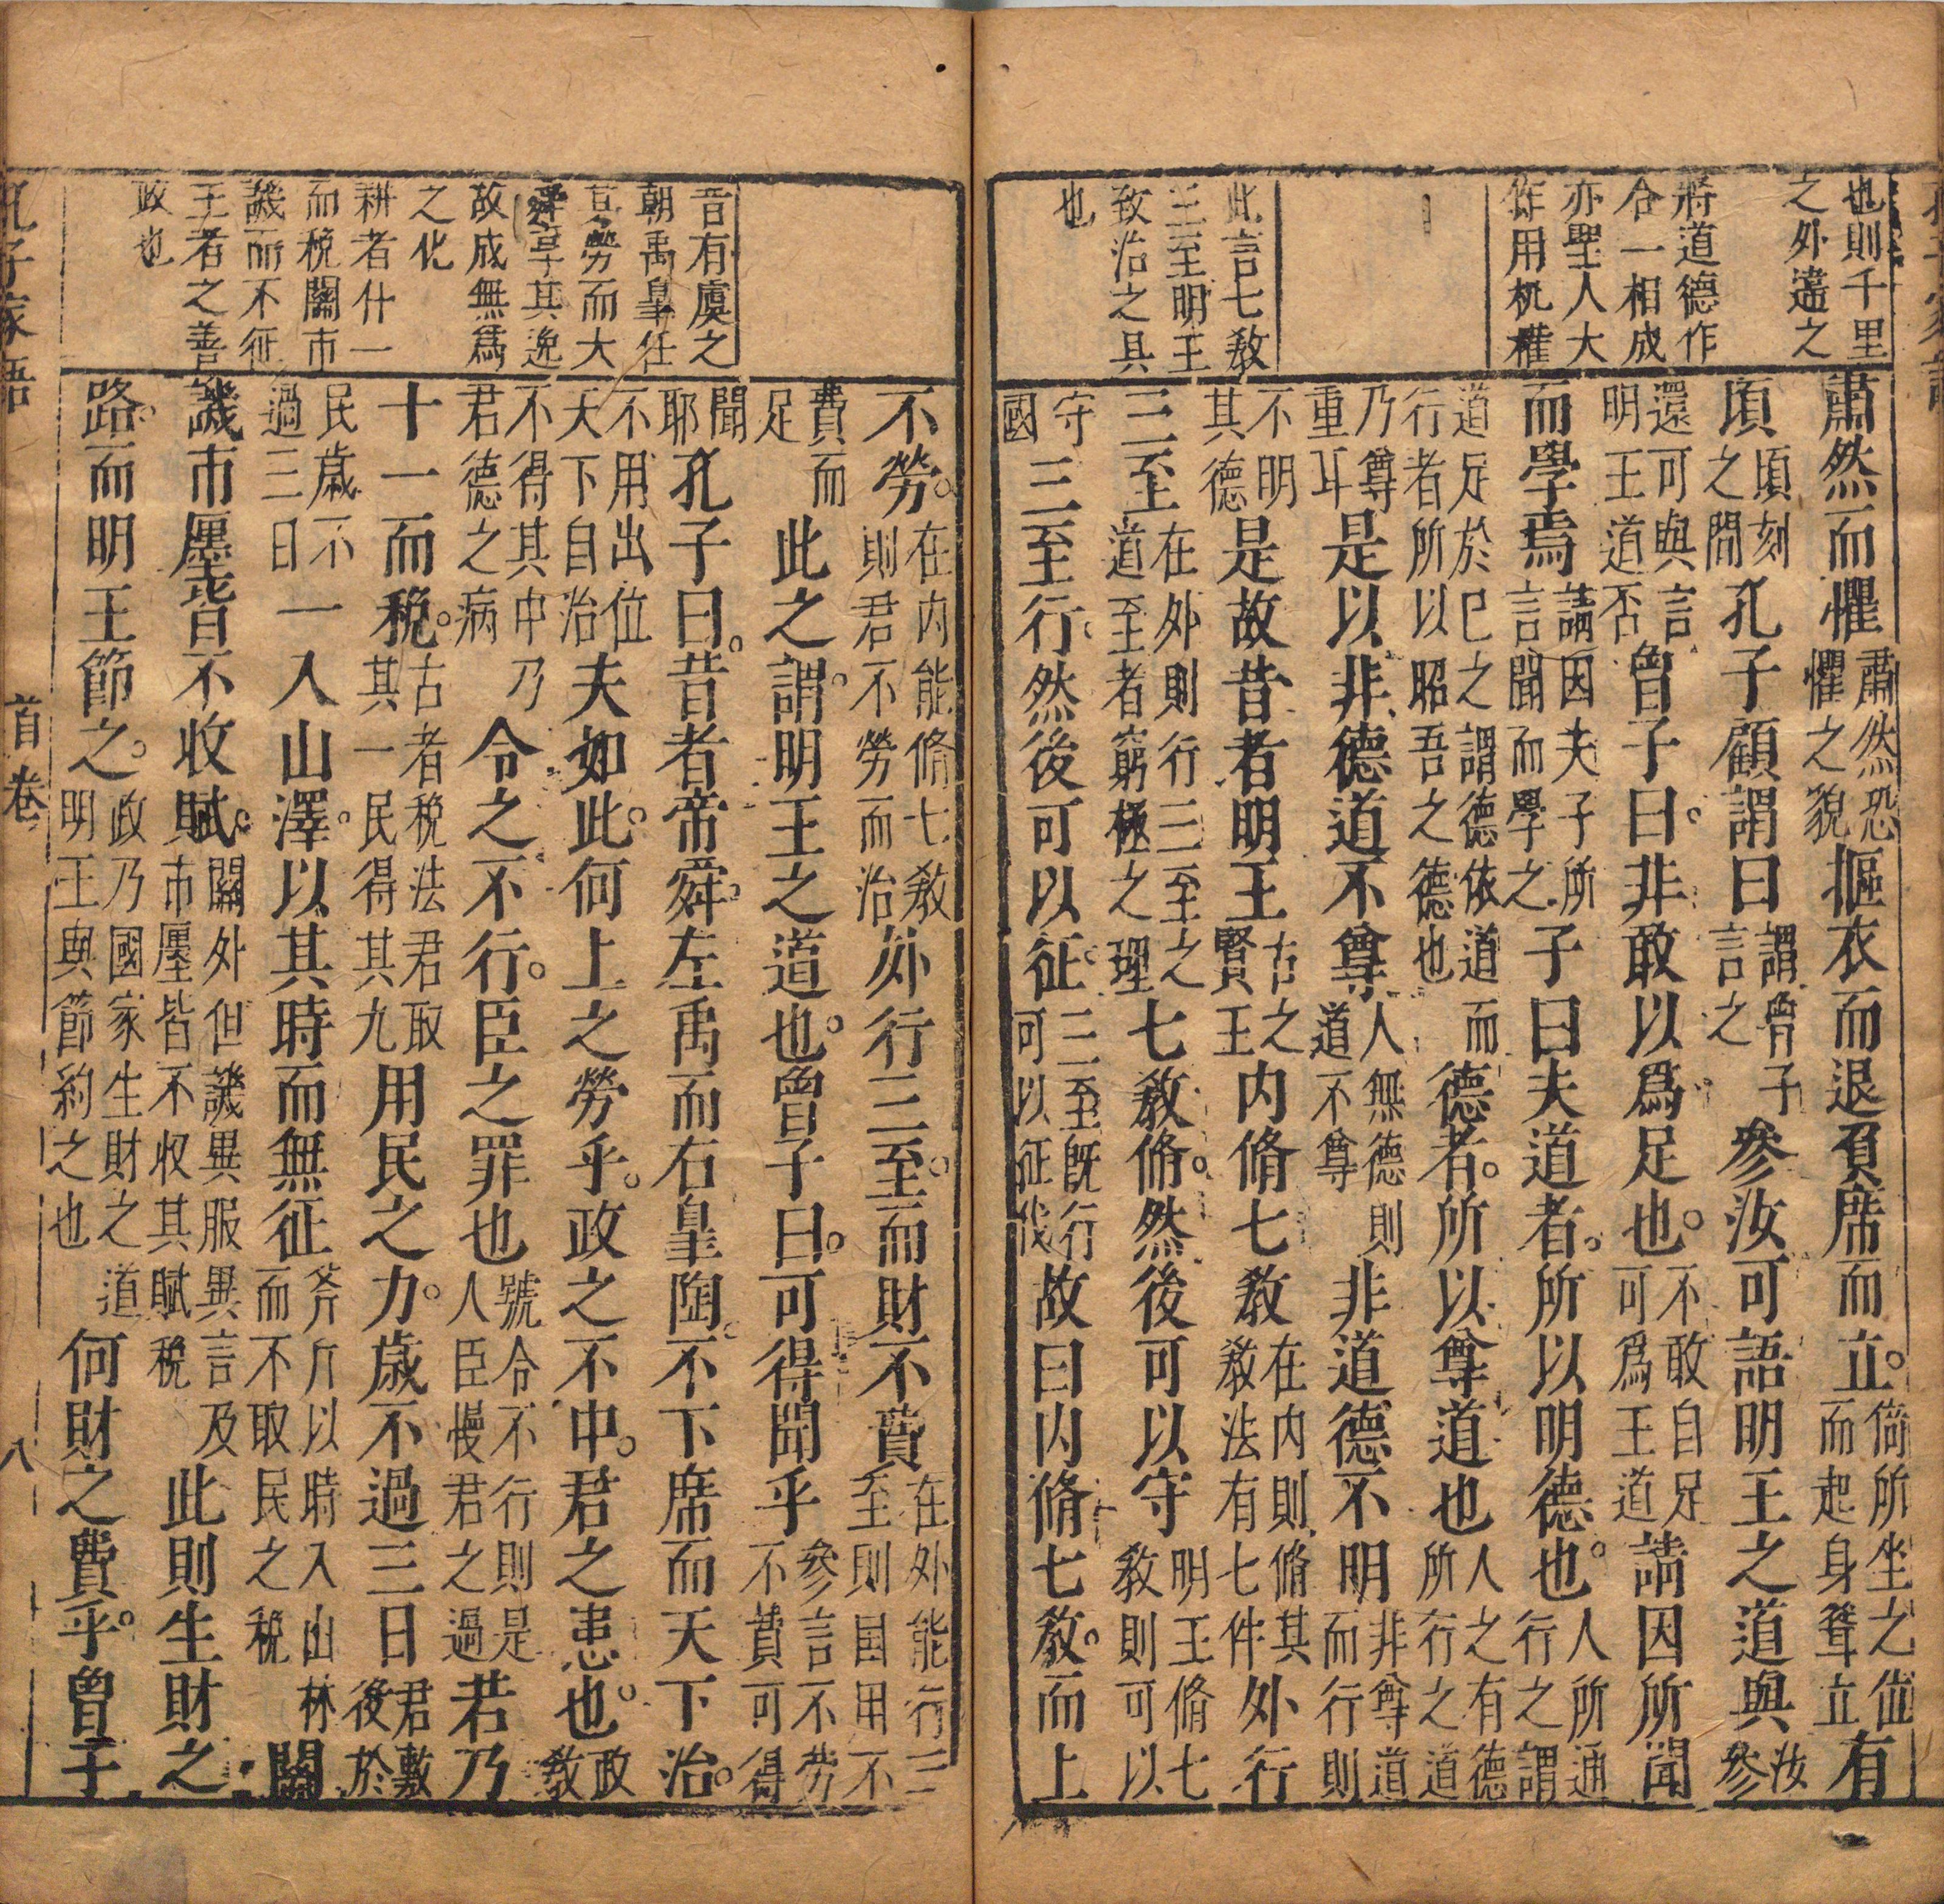 孔子家語
也則千里
之外違之
將道德作
合一相成
亦聖人大
作用机權
此言七教
三至明王
致治之具
也
肅然而懼肅然恐懼之貌摳衣而退負席而立。倚所坐之位而起身聳立有
頃頃刻之間孔子顧謂曰謂曾子言之參汝可語明王之道與汝參
還可與言明王道否曾子曰。非敢以爲足也。不敢自足可爲王道請因所聞
而學焉請因夫子所言聞而學之子曰夫道者。所以明德也。人所通行之謂
道足於己之謂德依道而行者所以昭吾之德也德者。所以尊道也人之有德所行之道
乃尊重耳是以非德道不尊人無德則道不尊非道德不明非尊道而行則
不明其德是故昔者明王古之賢王内脩七教在内則脩其教法有七件外行
三至在外則行三至之道至者窮極之理七教脩。然後可以守明王脩七教則可以
守國三至行。然後可以征。三至既行可以征伐故曰内脩七教。而上
昔有虞之
朝禹皇任
其勞而大
舜享其逸
故成無爲
之化
耕者什一
而稅關市
譏而不征
王者之善
政也
不勞。在内能脩七教則君不勞而治外行三至。而財不費在外能行三至則国用不
費而足此之謂。明王之道也。曾子曰。可得聞乎參言不勞不費可得
聞耶孔子曰。昔者帝舜。左禹而右皇陶。不下席而天下治。
不用出位天下自治夫如此。何上之勞乎。政之不中。君之患也。政教
不得其中乃君德之病令之不行。臣之罪也號令不行則是人臣慢君之過若乃
十一而稅。古者稅法君取其一民得其九用民之力。歲不過三日君敷後於
民歲不過三日一入山澤。以其時而無征斧斤以時入山林而不取民之稅關
譏市廛皆不收賦。關外但譏異服異言及市廛皆不收其賦稅此則生財之
路。而明王節之。政乃國家生財之道明王與節約之也何財之費乎。曾子
孔子家語
首卷
八